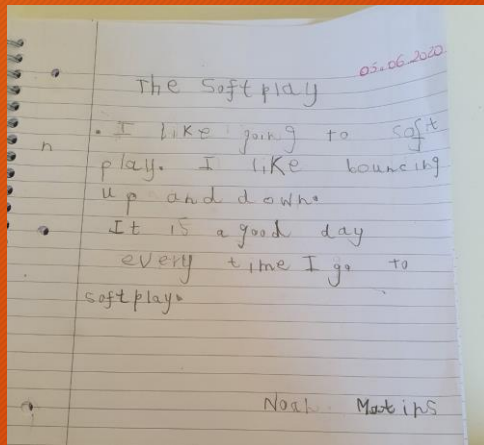 05.06.2020
The Softplay
. I like going to soft
n
play. I like bouncing
up and down.
It is a good day
every time I go to
softplay.
Noah Matips